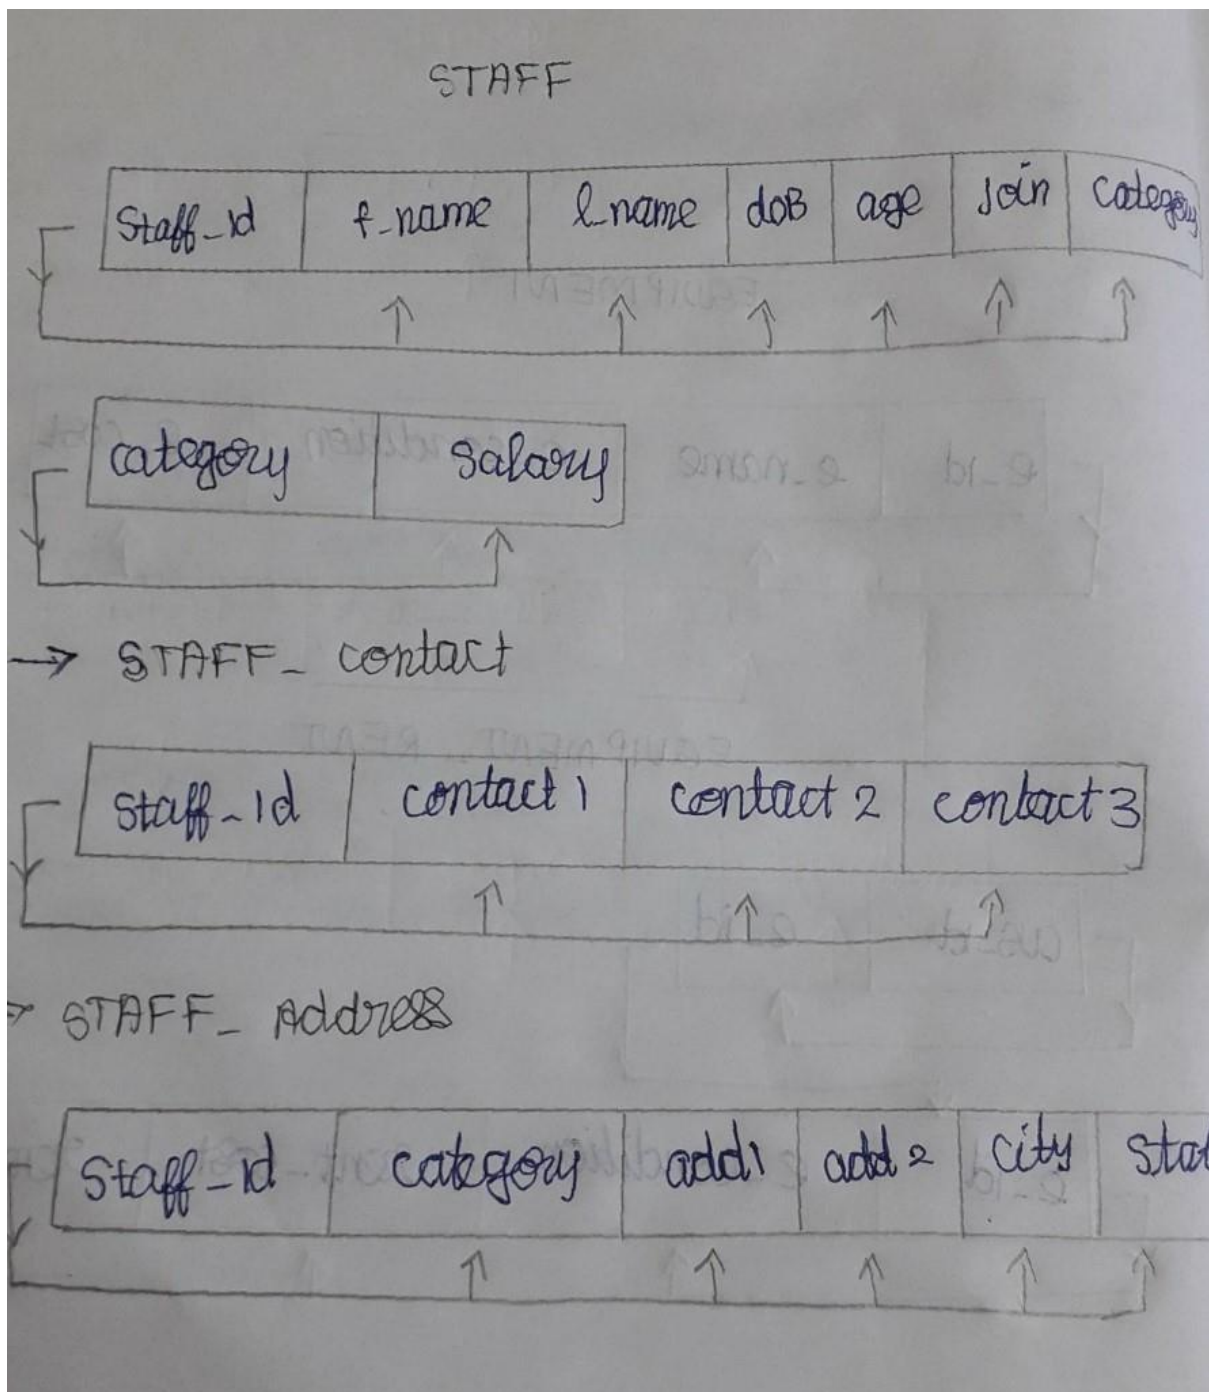 STAFF
Staff_id f_name l_name doB age join category
category salary
→ STAFF_ contact
staff_Id contact 1 contact 2 contact 3
→ STAFF_ Address
Staff_id category add1 add 2 city stat